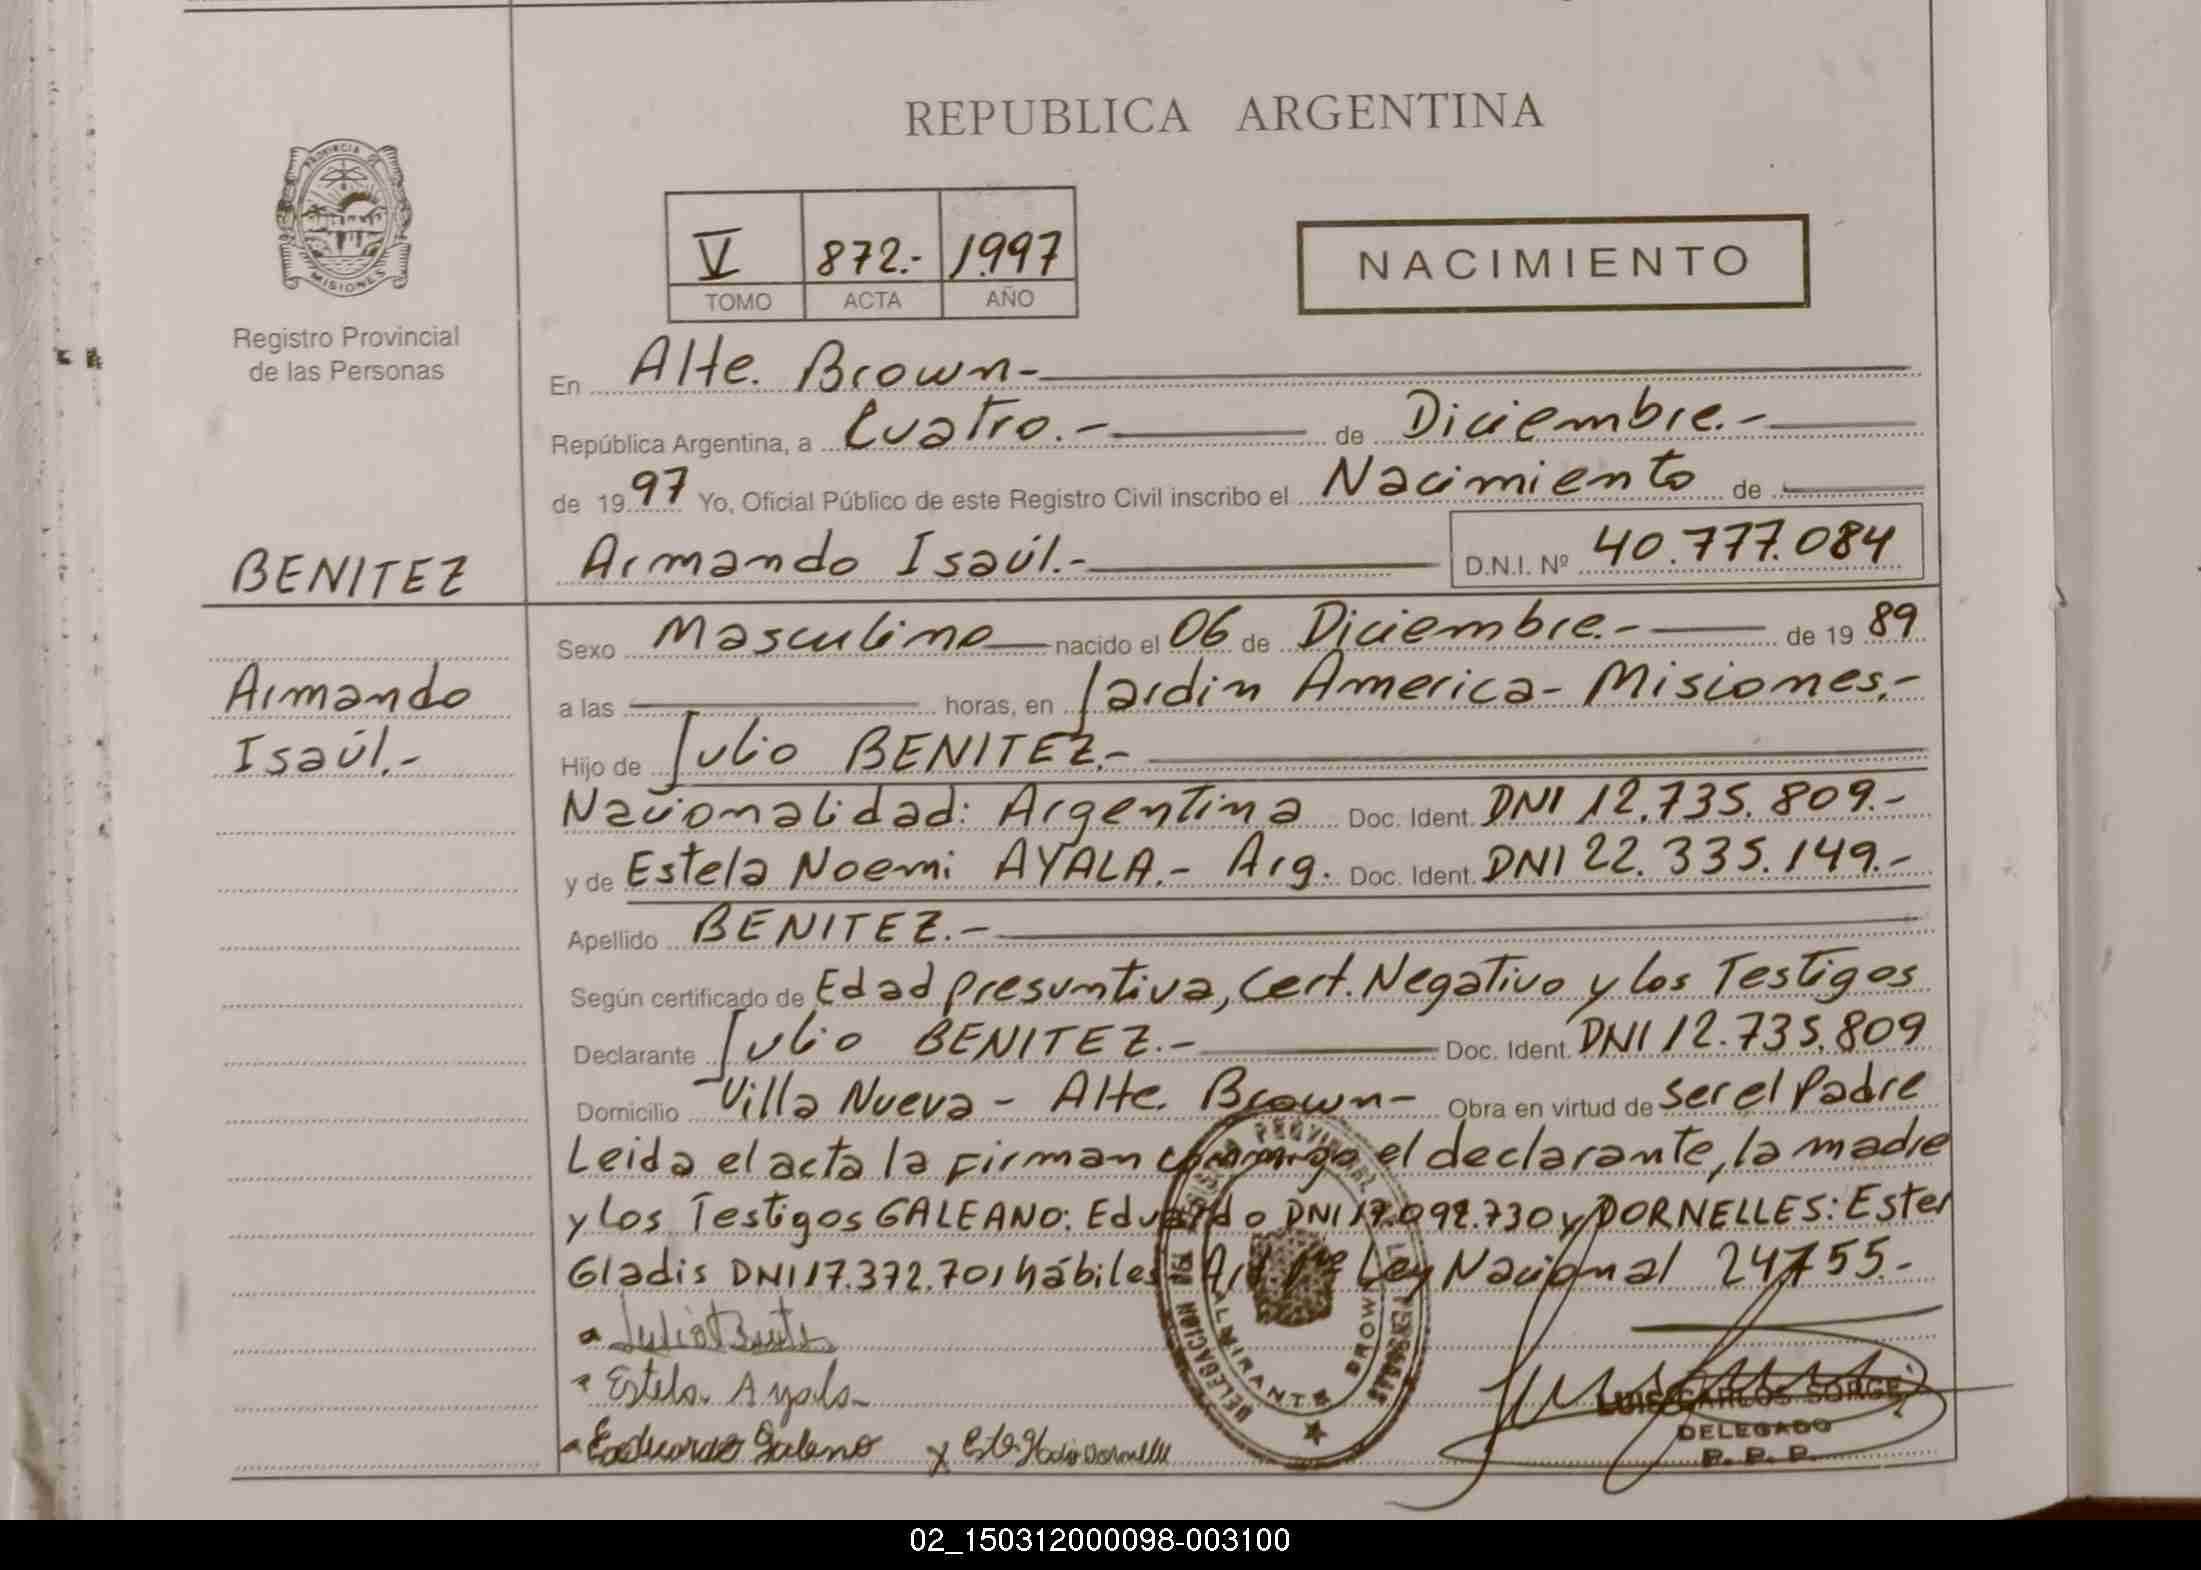 REPUBLICA ARGENTINA
PROVINCIA DE
MISIONES
Registro Provincial
de las Personas
V 872.- 1997
TOMO ACTA AÑO
NACIMIENTO
En Alte. Brown-
República Argentina, a Cuatro.- de Diciembre.-
de 1997 Yo, Oficial Público de este Registro Civil inscribo el Nacimiento de
BENITEZ
Armando Isaúl.- D.N.I. Nº 40.777.084
Armando
Isaúl.-
Sexo Masculino nacido el 06 de Diciembre.- de 19 89
a las horas, en Jardin America- Misiones.-
Hijo de Julio BENITEZ.-
Nacionalidad: Argentina Doc. Ident. DNI 12.735.809.-
y de Estela Noemi AYALA.- Arg. Doc. Ident. DNI 22.335.149.-
Apellido BENITEZ.-
Según certificado de Edad presuntiva, Cert. Negativo y los Testigos
Declarante Julio BENITEZ.- Doc. Ident. DNI 12.735.809
Domicilio Villa Nueva - Alte. Brown- Obra en virtud de ser el Padre
Leida el acta la firman conmigo el declarante, la madre
y los Testigos GALEANO: Eduardo DNI 17.092.730 y DORNELLES: Ester
Gladis DNI 17.372.701 hábiles Ley Nacional 24755.-
DELEGACION
ALMIRANTE BROWN
Estela Ayala
Eduardo Galeano
LUIS CARLOS SORGE
DELEGADO
R. P. P.
02_150312000098-003100